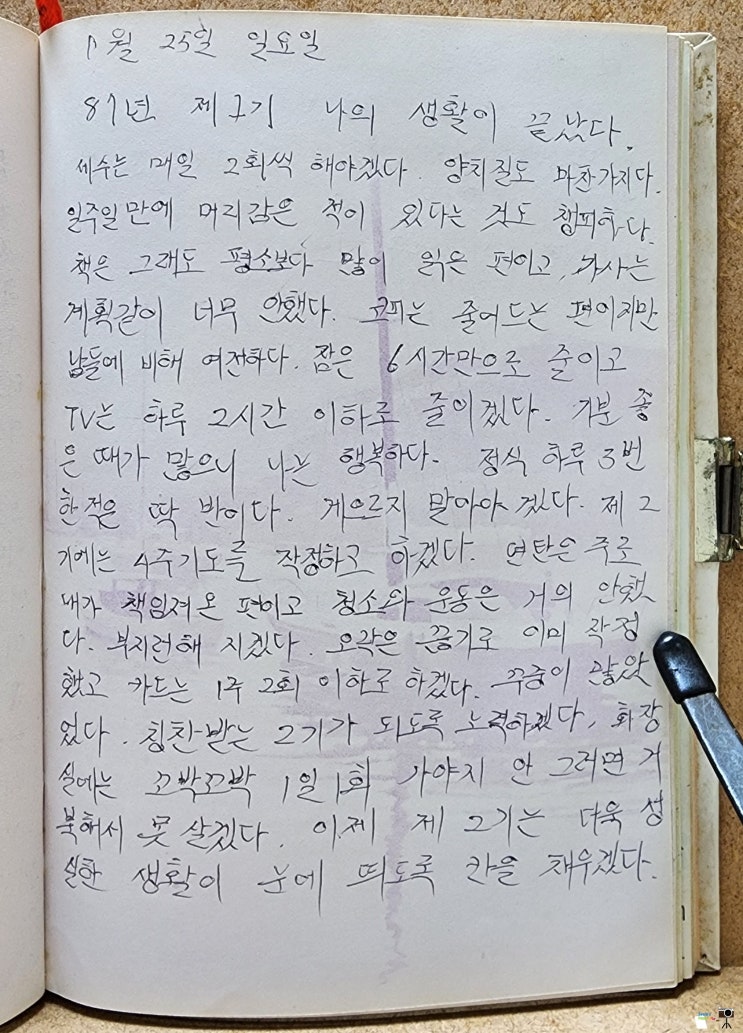 1월 25일 일요일
87년 제1기 나의 생활이 끝났다.
세수는 매일 2회씩 해야겠다. 양치질도 마찬가지다.
일주일만에 머리감은 적이 있다는 것도 챙피하다.
책은 그래도 평소보다 많이 읽은 편이고, 가사는
계획같이 너무 안했다. 코피는 줄어드는 편이지만
남들에 비해 여전하다. 잠은 6시간만으로 줄이고
TV는 하루 2시간 이하로 줄이겠다. 기분 좋
은 때가 많으니 나는 행복하다. 정식 하루 3번
한 적은 딱 반이다. 게으르지 말아야 겠다. 제 2
기에는 4주기도를 작정하고 하겠다. 연탄은 주로
내가 책임져온 편이고 청소와 운동은 거의 안했
다. 부지런해 지겠다. 오락은 끊기로 이미 작정
했고 카드는 1주 2회 이하로 하겠다. 꾸중이 많았
었다. 칭찬받는 2기가 되도록 노력하겠다. 화장
실에는 꼬박꼬박 1일 1회 가야지 안 그러면 거
북해서 못 살겠다. 이제 제 2기는 더욱 성
실한 생활이 눈에 띄도록 칸을 채우겠다.